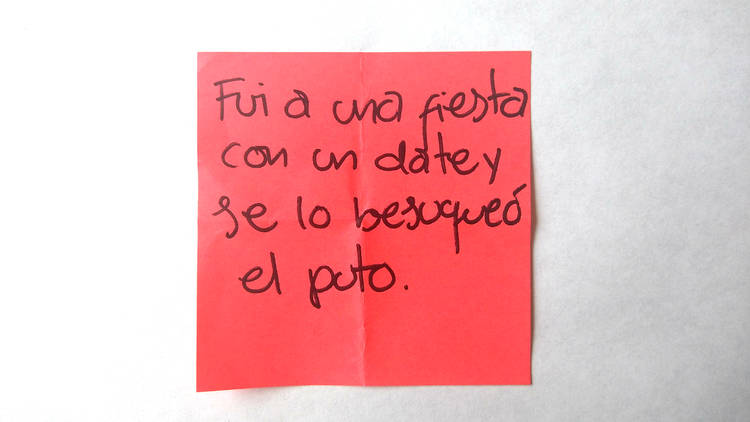 Fui a una fiesta
con un date y
se lo besuqueó
el puto.